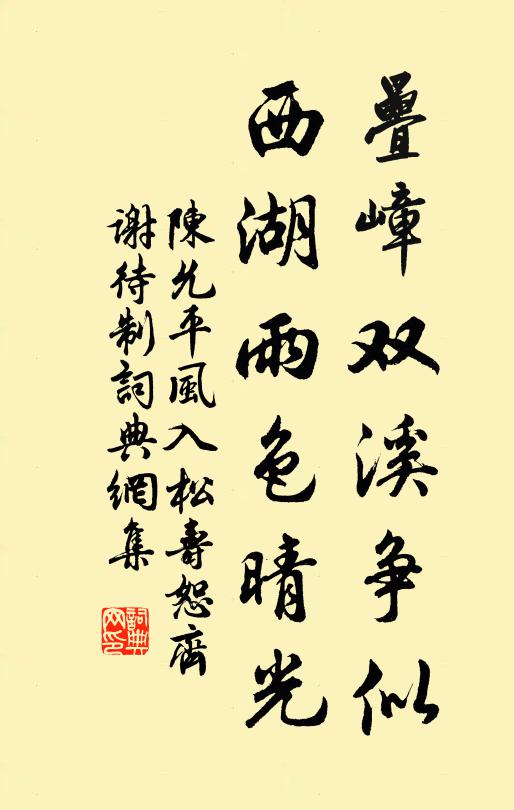 疊嶂双溪争似
西湖雨色晴光
陳允平風入松壽恕齊
谢待制詞典網集
詞典
网印